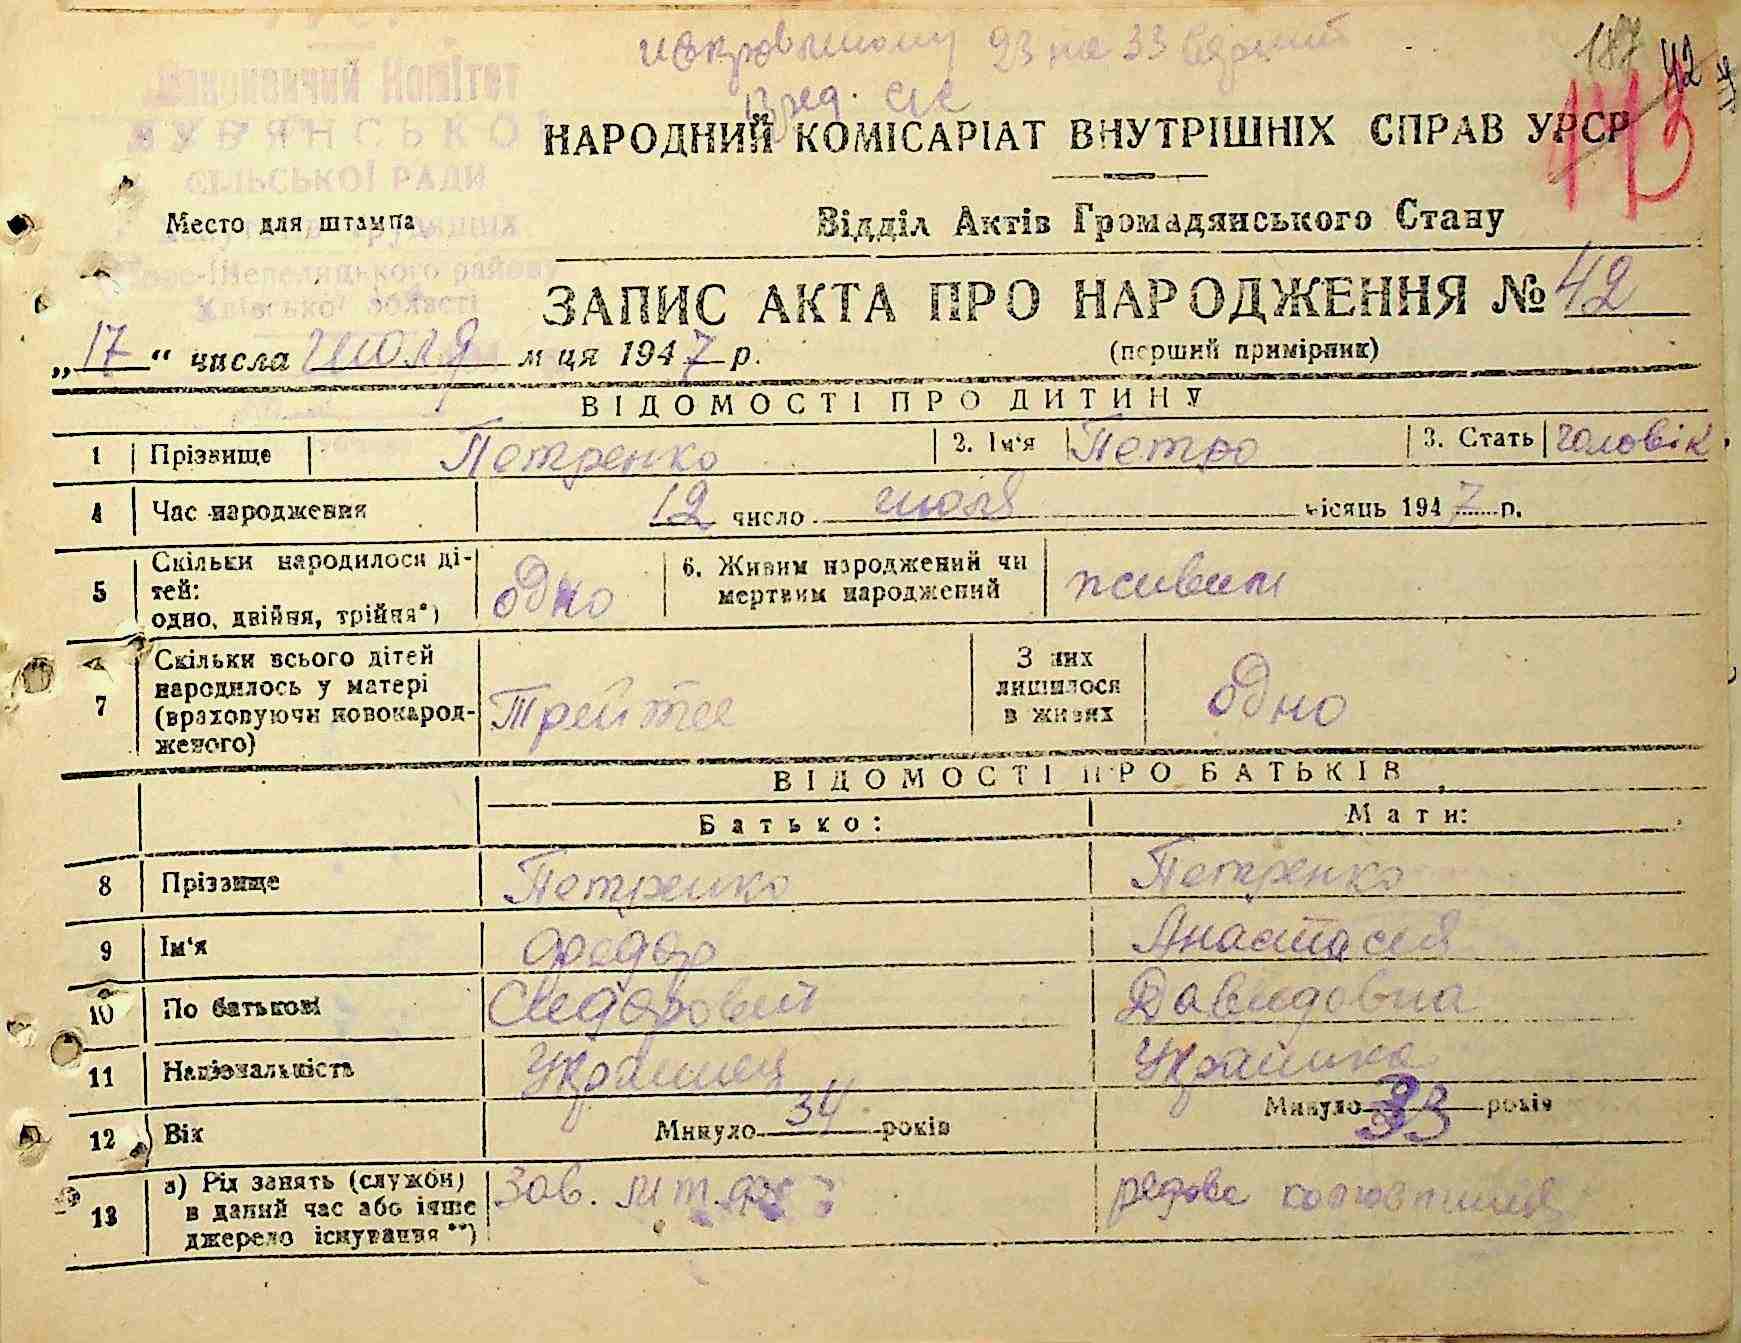 187 42
113
Виконавчий Комітет
СІЛЬСЬКОЇ РАДИ
НАРОДНИЙ КОМІСАРІАТ ВНУТРІШНІХ СПРАВ УРСР
Место для штампа
Відділ Актів Громадянського Стану
району
області
ЗАПИС АКТА ПРО НАРОДЖЕННЯ № 42
„17“ числа июля м ця 1947 р. (перший примірник)
ВІДОМОСТІ ПРО ДИТИНУ
1 Прізвище Петренко 2. Ім'я Петро 3. Стать чоловік
4 Час народження 12 число июля місяць 1947 р.
5 Скільки народилося ді-
тей:
одно, двійня, трійня*) одно 6. Живим народжений чи
мертвим народжений живим
7 Скільки всього дітей
народилось у матері
(враховуючи новонарод-
женого) З них
лишилося
в живих одно
ВІДОМОСТІ ПРО БАТЬКІВ
Батько: Мати:
8 Прізвище Петренко Петренко
9 Ім'я Федор Анастасия
10 По батькові Сидорович Давидовна
11 Національність Украинец Украинка
12 Вік Минуло 34 років Минуло 33 років
13 а) Рід занять (служби)
в даний час або інше
джерело існування **) Зав.